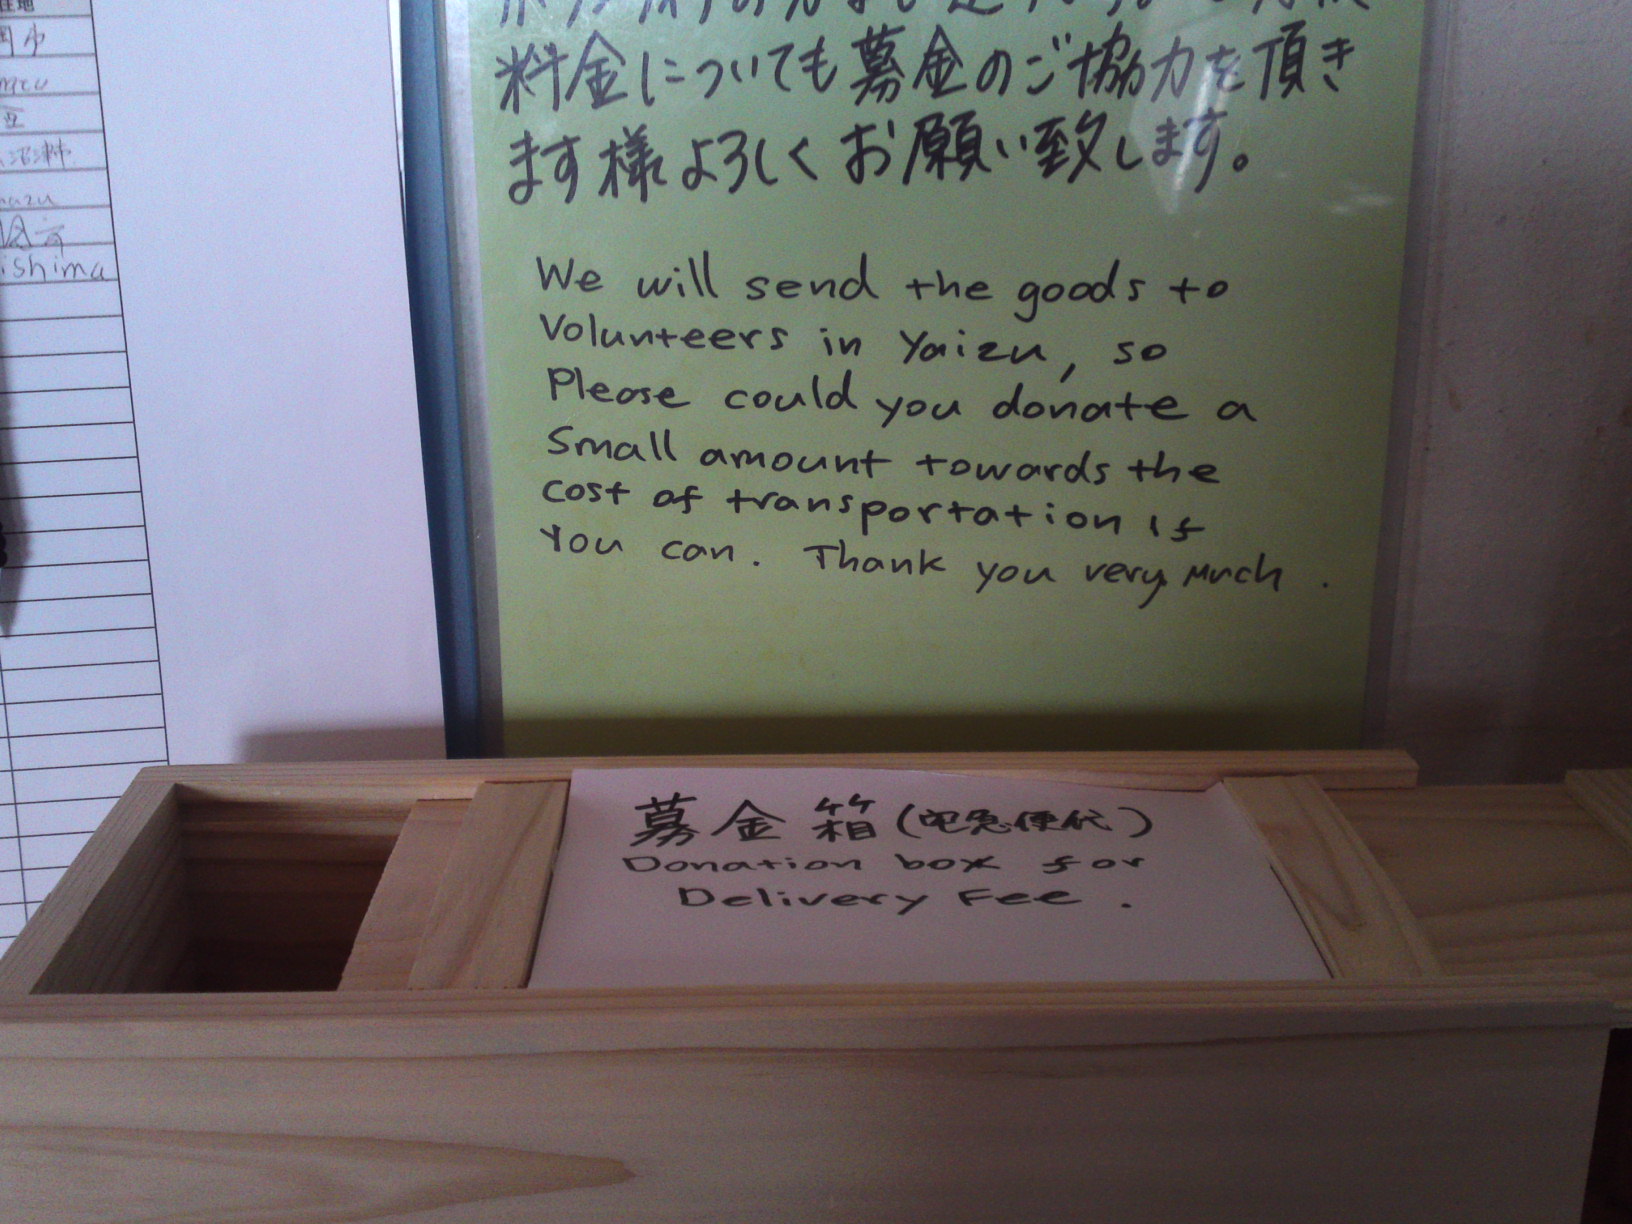 料金についても募金のご協力を頂き
ます様よろしくお願い致します。
We will send the goods to
Volunteers in Yaizu, so
Please could you donate a
Small amount towards the
cost of transportation if
You can. Thank you very Much.
募金箱(宅急便代)
Donation box for
Delivery Fee.
在地
岡市
沼津市
ishima